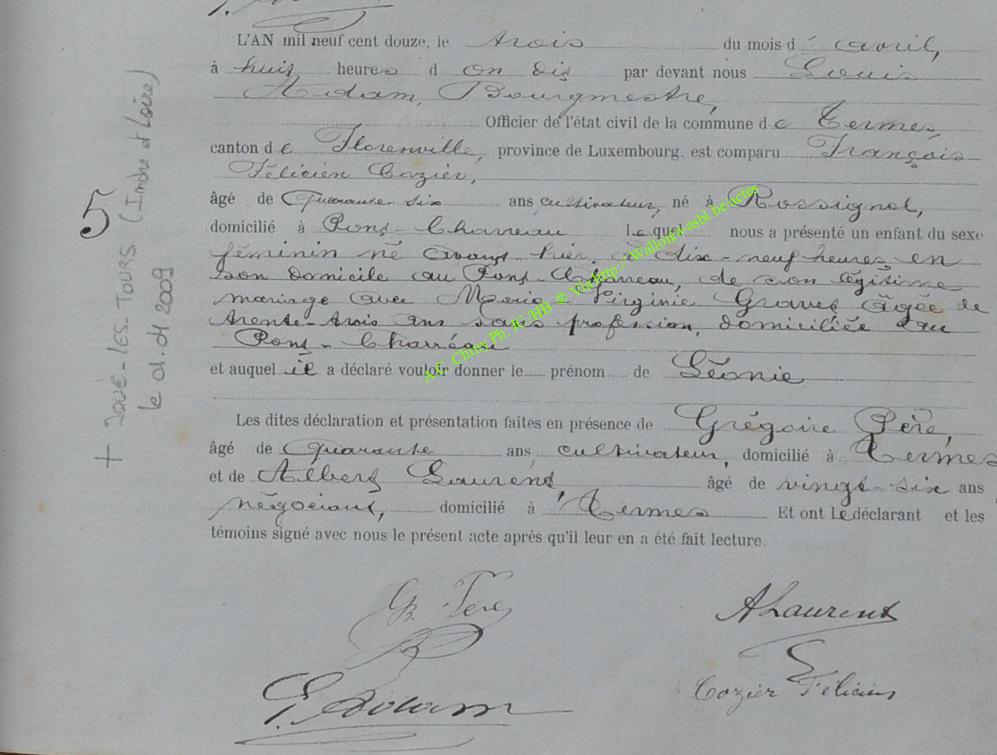 L'AN mil neuf cent douze, le trois du mois d'avril,
à huit heures d on dix par devant nous Louis
Adam, Bourgmestre,
Officier de l'état civil de la commune de Termes,
canton de Florenville, province de Luxembourg, est comparu François
Félicien Cozier,
âgé de Quarante-six ans, cultivateur, né à Rossignol,
domicilié à Pont-Charreau lequel nous a présenté un enfant du sexe
féminin né avant-hier, à dix-neuf heures en
son domicile au Pont Charreau, de son légitime
mariage avec Marie-Virginie Graves âgée de
trente-trois ans sans profession, domiciliée au
Pont-Charreau
et auquel il a déclaré vouloir donner le prénom de Léonie
Les dites déclaration et présentation faites en présence de Grégoire Père,
âgé de Quarante ans, cultivateur, domicilié à Termes
et de Albert Laurent, âgé de vingt-six ans
négociant, domicilié à Termes Et ont le déclarant et les
témoins signé avec nous le présent acte après qu'il leur en a été fait lecture.
G. Père
ALaurent
Cozier Félicien
L. Adam
5
+ JOUÉ-LES-TOURS (Indre et Loire)
le 01.04 2009
A.E. Chiny Ph. JG/HB © Vix http://Wallonia-asbl be/actes